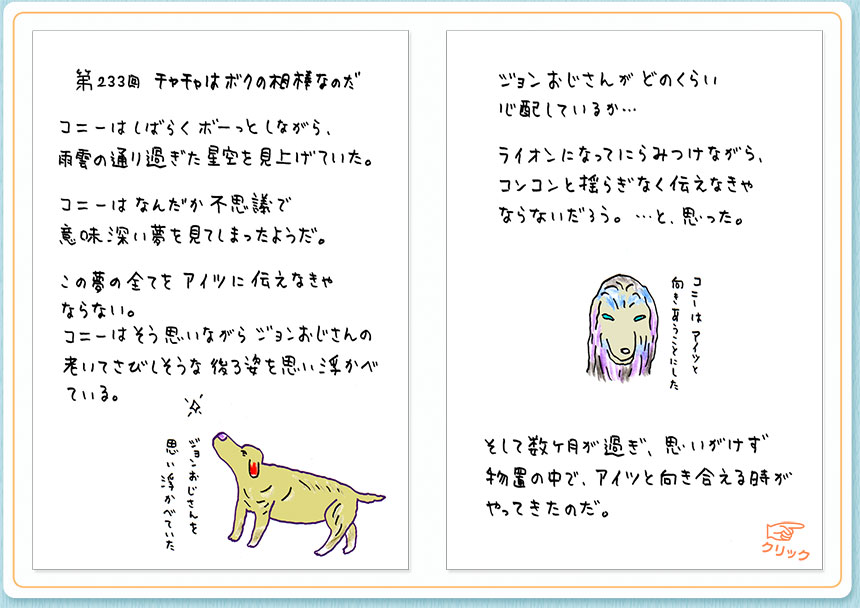 第233回 チャチャはボクの相棒なのだ
コニーはしばらくボーっとしながら、
雨雲の通り過ぎた星空を見上げていた。
コニーはなんだか不思議で
意味深い夢を見てしまったようだ。
この夢の全てをアイツに伝えなきゃ
ならない。
コニーはそう思いながらジョンおじさんの
老いてさびしそうな後ろ姿を思い浮かべ
ている。
ジョンおじさんを
思い浮かべていた
ジョンおじさんがどのくらい
心配しているか…
ライオンになってにらみつけながら、
コンコンと揺らぎなく伝えなきゃ
ならないだろう。…と、思った。
コニーはアイツと
向きあうことにした
そして数ヶ月が過ぎ、思いがけず
物置の中で、アイツと向き合える時が
やってきたのだ。
クリック